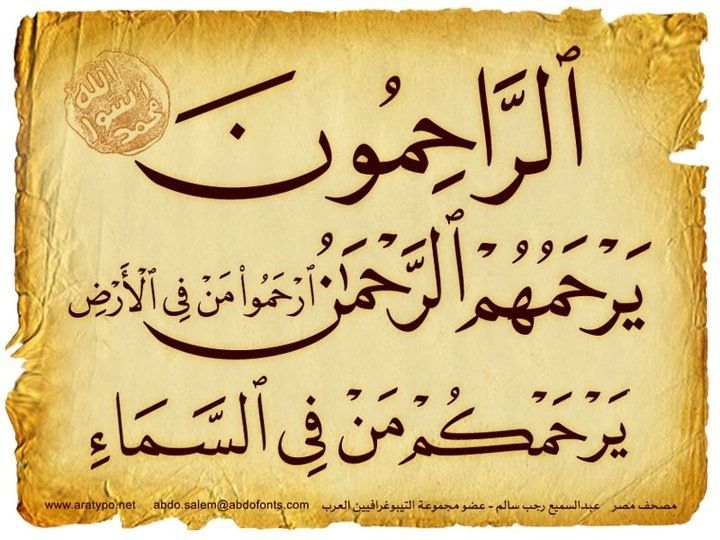 الله
رسول
محمد
ٱلرَّاحِمُونَ
يَرْحَمُهُمُ ٱلرَّحْمَٰنُ ٱرْحَمُواْ مَنْ فِي ٱلْأَرْضِ
يَرْحَمْكُمْ مَنْ فِي ٱلسَّمَاءِ
مصحف مصر عبدالسميع رجب سالم - عضو مجموعة التيبوغرافيين العرب abdo.salem@abdofonts.com www.aratypo.net